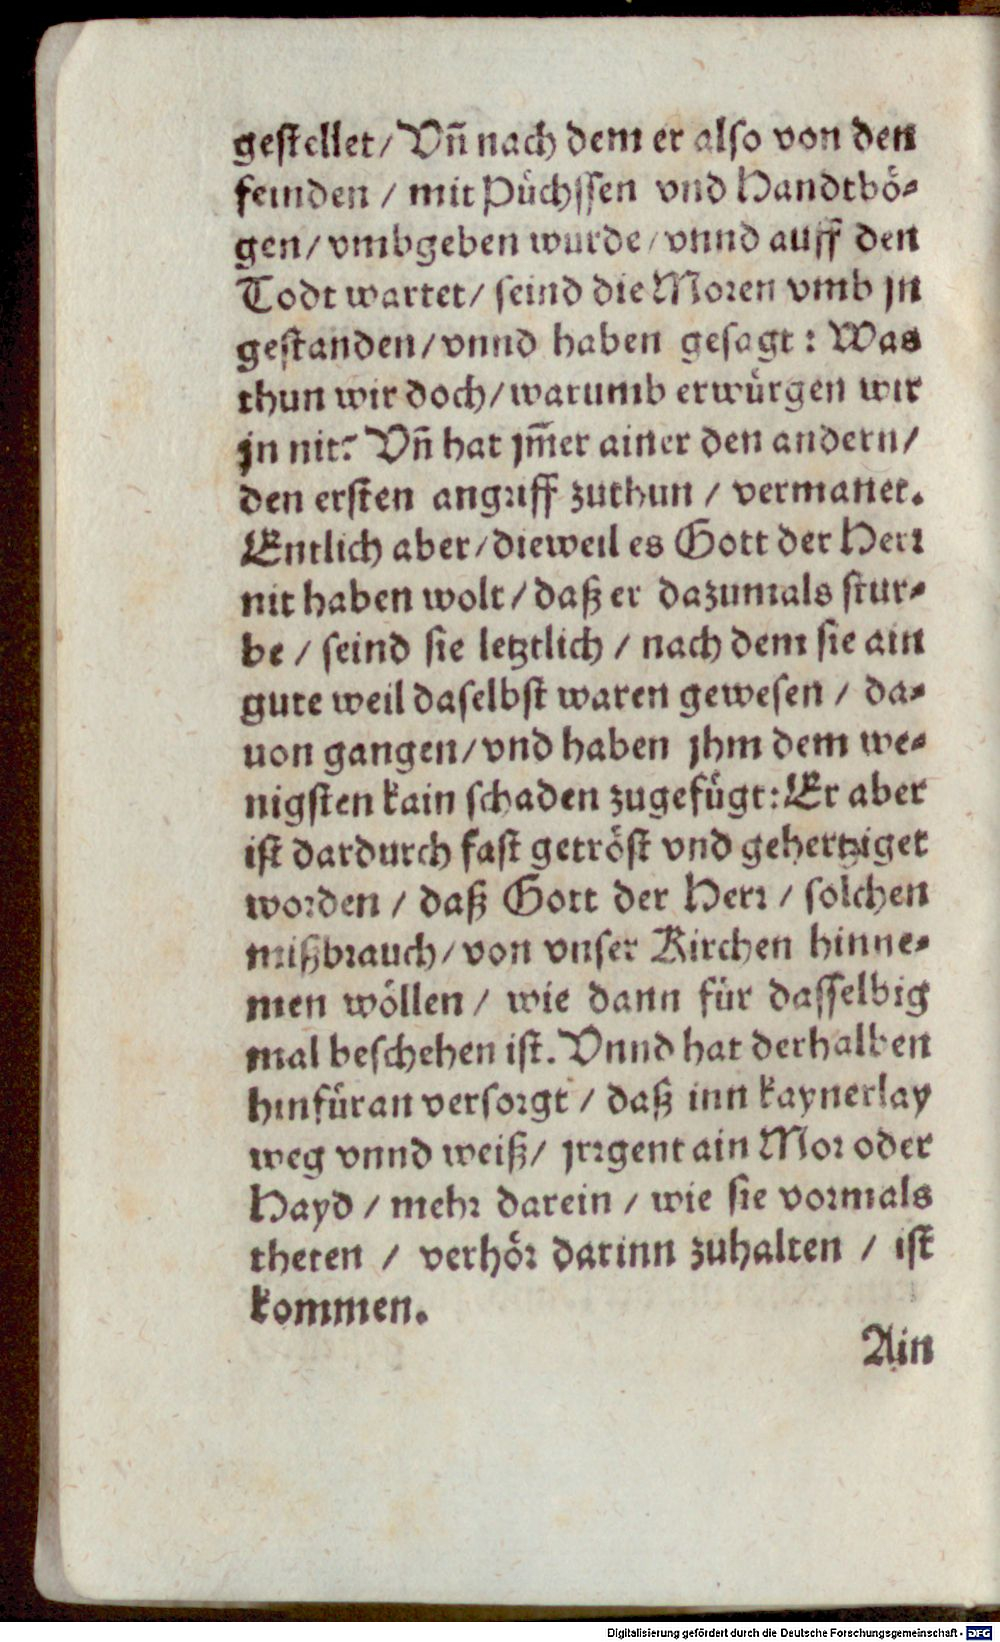 gestellet/ Vñ nach dem er also von den
feinden / mit Püchssen vnd Handtbö-
gen/ vmbgeben wurde/ vnnd auff den
Todt wartet/ seind die Moren vmb jn
gestanden/ vnnd haben gesagt: Was
thun wir doch/ warumb erwürgen wir
jn nit? Vñ hat jm̃er ainer den andern/
den ersten angriff zuthun / vermanet.
Entlich aber/ dieweil es Gott der Herr
nit haben wolt/ daß er dazumals stur-
be / seind sie letztlich / nach dem sie ain
gute weil daselbst waren gewesen / da-
uon gangen/ vnd haben jhm dem we-
nigsten kain schaden zugefügt: Er aber
ist dardurch fast getröst vnd gehertziget
worden / daß Gott der Herr / solchen
mißbrauch/ von vnser Kirchen hinne-
men wöllen / wie dann für dasselbig
mal beschehen ist. Vnnd hat derhalben
hinfüran versorgt / daß inn kaynerlay
weg vnnd weiß/ jrrgent ain Mor oder
Hayd / mehr darein / wie sie vormals
theten / verhör darinn zuhalten / ist
kommen.
Ain
Digitalisierung gefördert durch die Deutsche Forschungsgemeinschaft - DFG